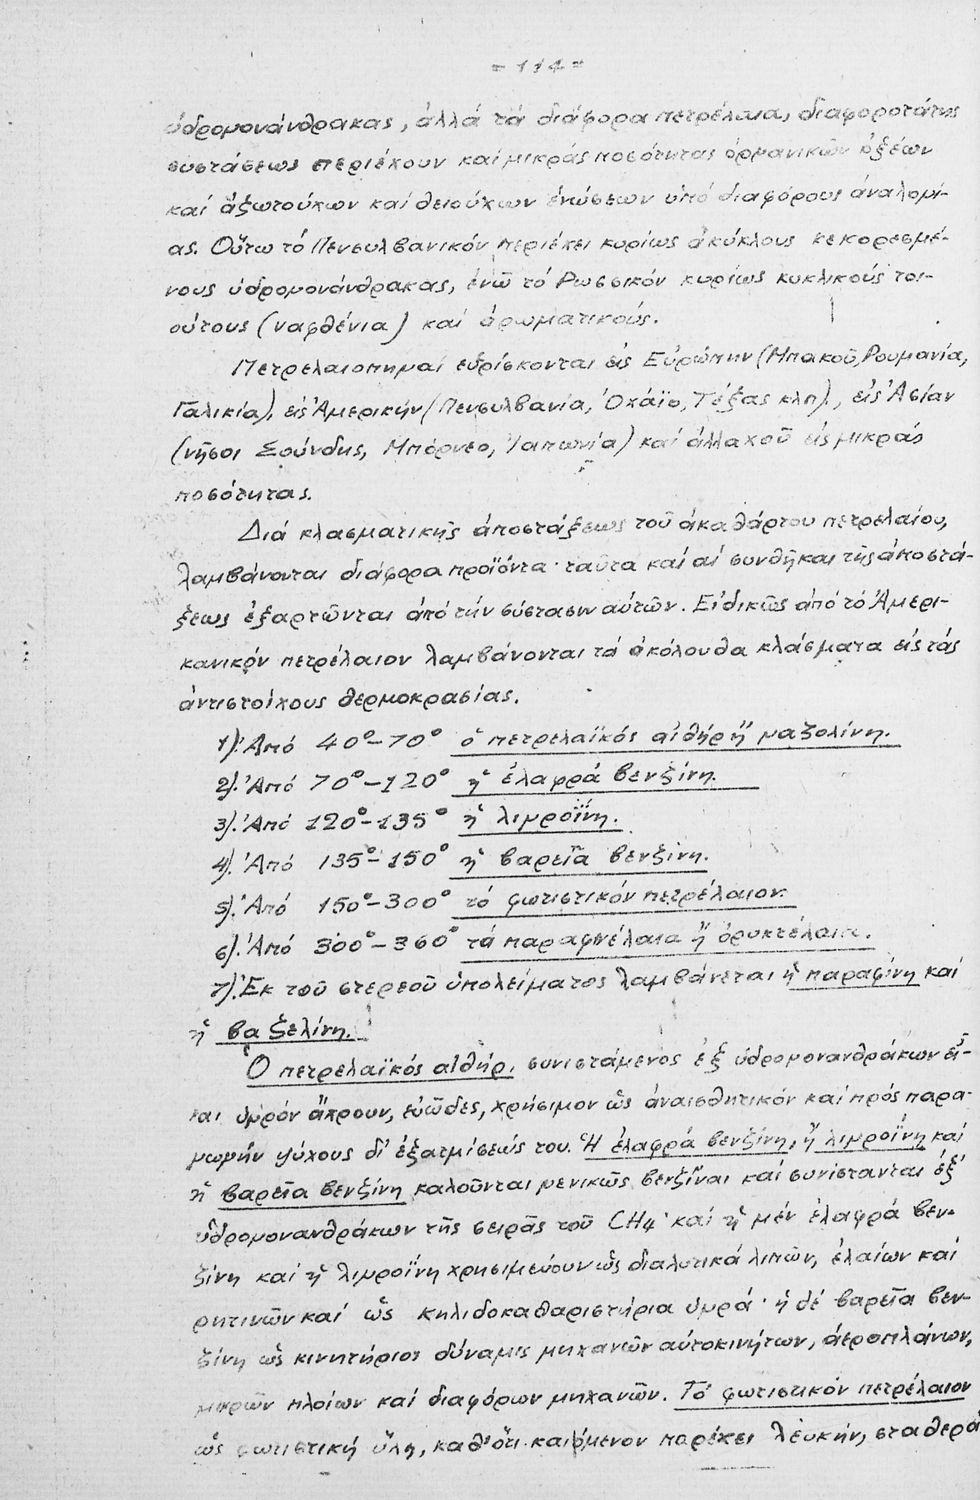 - 114 -
ὑδρογονάνθρακας, ἀλλά τά διάφορα πετρέλαια, διαφοροτάτης
συστάσεως περιέχουν καί μικράς ποσότητας ὀργανικῶν ὀξέων
καί ἀζωτούχων καί θειούχων ἑνώσεων ὑπό διαφόρους ἀναλογί-
ας. Οὕτω τό Πενσυλβανικόν περιέχει κυρίως ἀκύκλους κεκορεσμέ-
νους ὑδρογονάνθρακας, ἐνῶ τό Ρωσσικόν κυρίως κυκλικούς τοι-
ούτους (ναφθένια) καί ἀρωματικούς.
Πετρελαιοπηγαί εὑρίσκονται εἰς Εὐρώπην (Μπακοῦ, Ρουμανία,
Γαλικία), εἰς Ἀμερικήν (Πενσυλβανία, Ὀχάϊο, Τέξας κλπ)., εἰς Ἀσίαν
(νῆσοι Σούνδης, Μπόρνεο, Ἰαπωνία) καί ἀλλαχοῦ εἰς μικράς
ποσότητας.
Διά κλασματικῆς ἀποστάξεως τοῦ ἀκαθάρτου πετρελαίου,
λαμβάνονται διάφορα προϊόντα· ταῦτα καί αἱ συνθῆκαι τῆς ἀποστά-
ξεως ἐξαρτῶνται ἀπό τήν σύστασιν αὐτῶν. Εἰδικῶς ἀπό τό Ἀμερι-
κανικόν πετρέλαιον λαμβάνονται τά ἀκόλουθα κλάσματα εἰς τάς
ἀντιστοίχους θερμοκρασίας.
1). Ἀπό 40°-70° ὁ πετρελαϊκός αἰθήρ ἤ γαζολίνη.
2). Ἀπό 70°-120° ἡ ἐλαφρά βενζίνη.
3). Ἀπό 120°-135° ἡ λιγροΐνη.
4). Ἀπό 135°-150° ἡ βαρεῖα βενζίνη.
5). Ἀπό 150°-300° τό φωτιστικόν πετρέλαιον.
6). Ἀπό 300°-360° τά παραφινέλαια ἤ ὀρυκτέλαια.
7). Ἐκ τοῦ στερεοῦ ὑπολείματος λαμβάνεται ἡ παραφίνη καί
ἡ βαζελίνη.
Ὁ πετρελαϊκός αἰθήρ, συνιστάμενος ἐξ ὑδρογονανθράκων εἶ-
ναι ὑγρόν ἄχρουν, εὐῶδες, χρήσιμον ὡς ἀναισθητικόν καί πρός παρα-
γωγήν ψύχους δι' ἐξατμίσεώς του. Ἡ ἐλαφρά βενζίνη, ἡ λιγροΐνη καί
ἡ βαρεῖα βενζίνη καλοῦνται γενικῶς βενζῖναι καί συνίστανται ἐξ
ὑδρογονανθράκων τῆς σειρᾶς τοῦ CH4· καί ἡ μέν ἐλαφρά βεν-
ζίνη καί ἡ λιγροΐνη χρησιμεύουν ὡς διαλυτικά λιπῶν, ἐλαίων καί
ρητινῶν καί ὡς κηλιδοκαθαριστήρια ὑγρά· ἡ δέ βαρεῖα βεν-
ζίνη ὡς κινητήριος δύναμις μηχανῶν αὐτοκινήτων, ἀεροπλάνων,
μικρῶν πλοίων καί διαφόρων μηχανῶν. Τό φωτιστικόν πετρέλαιον
ὡς φωτιστική ὕλη, καθ' ὅτι καιόμενον παρέχει λευκήν, σταθερά